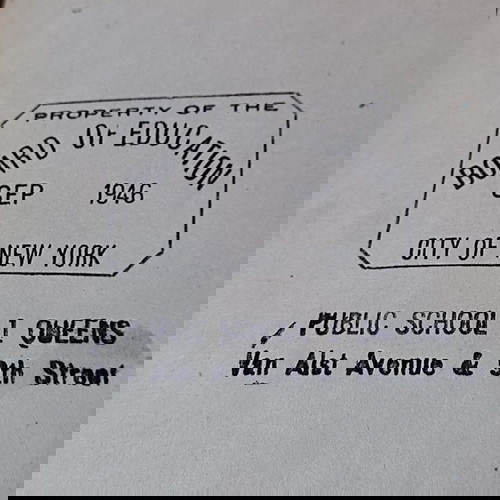 PROPERTY OF THE
BOARD OF EDUCATION
SEP 1946
CITY OF NEW YORK
PUBLIC SCHOOL 1 QUEENS
Van Alst Avenue & 9th Street